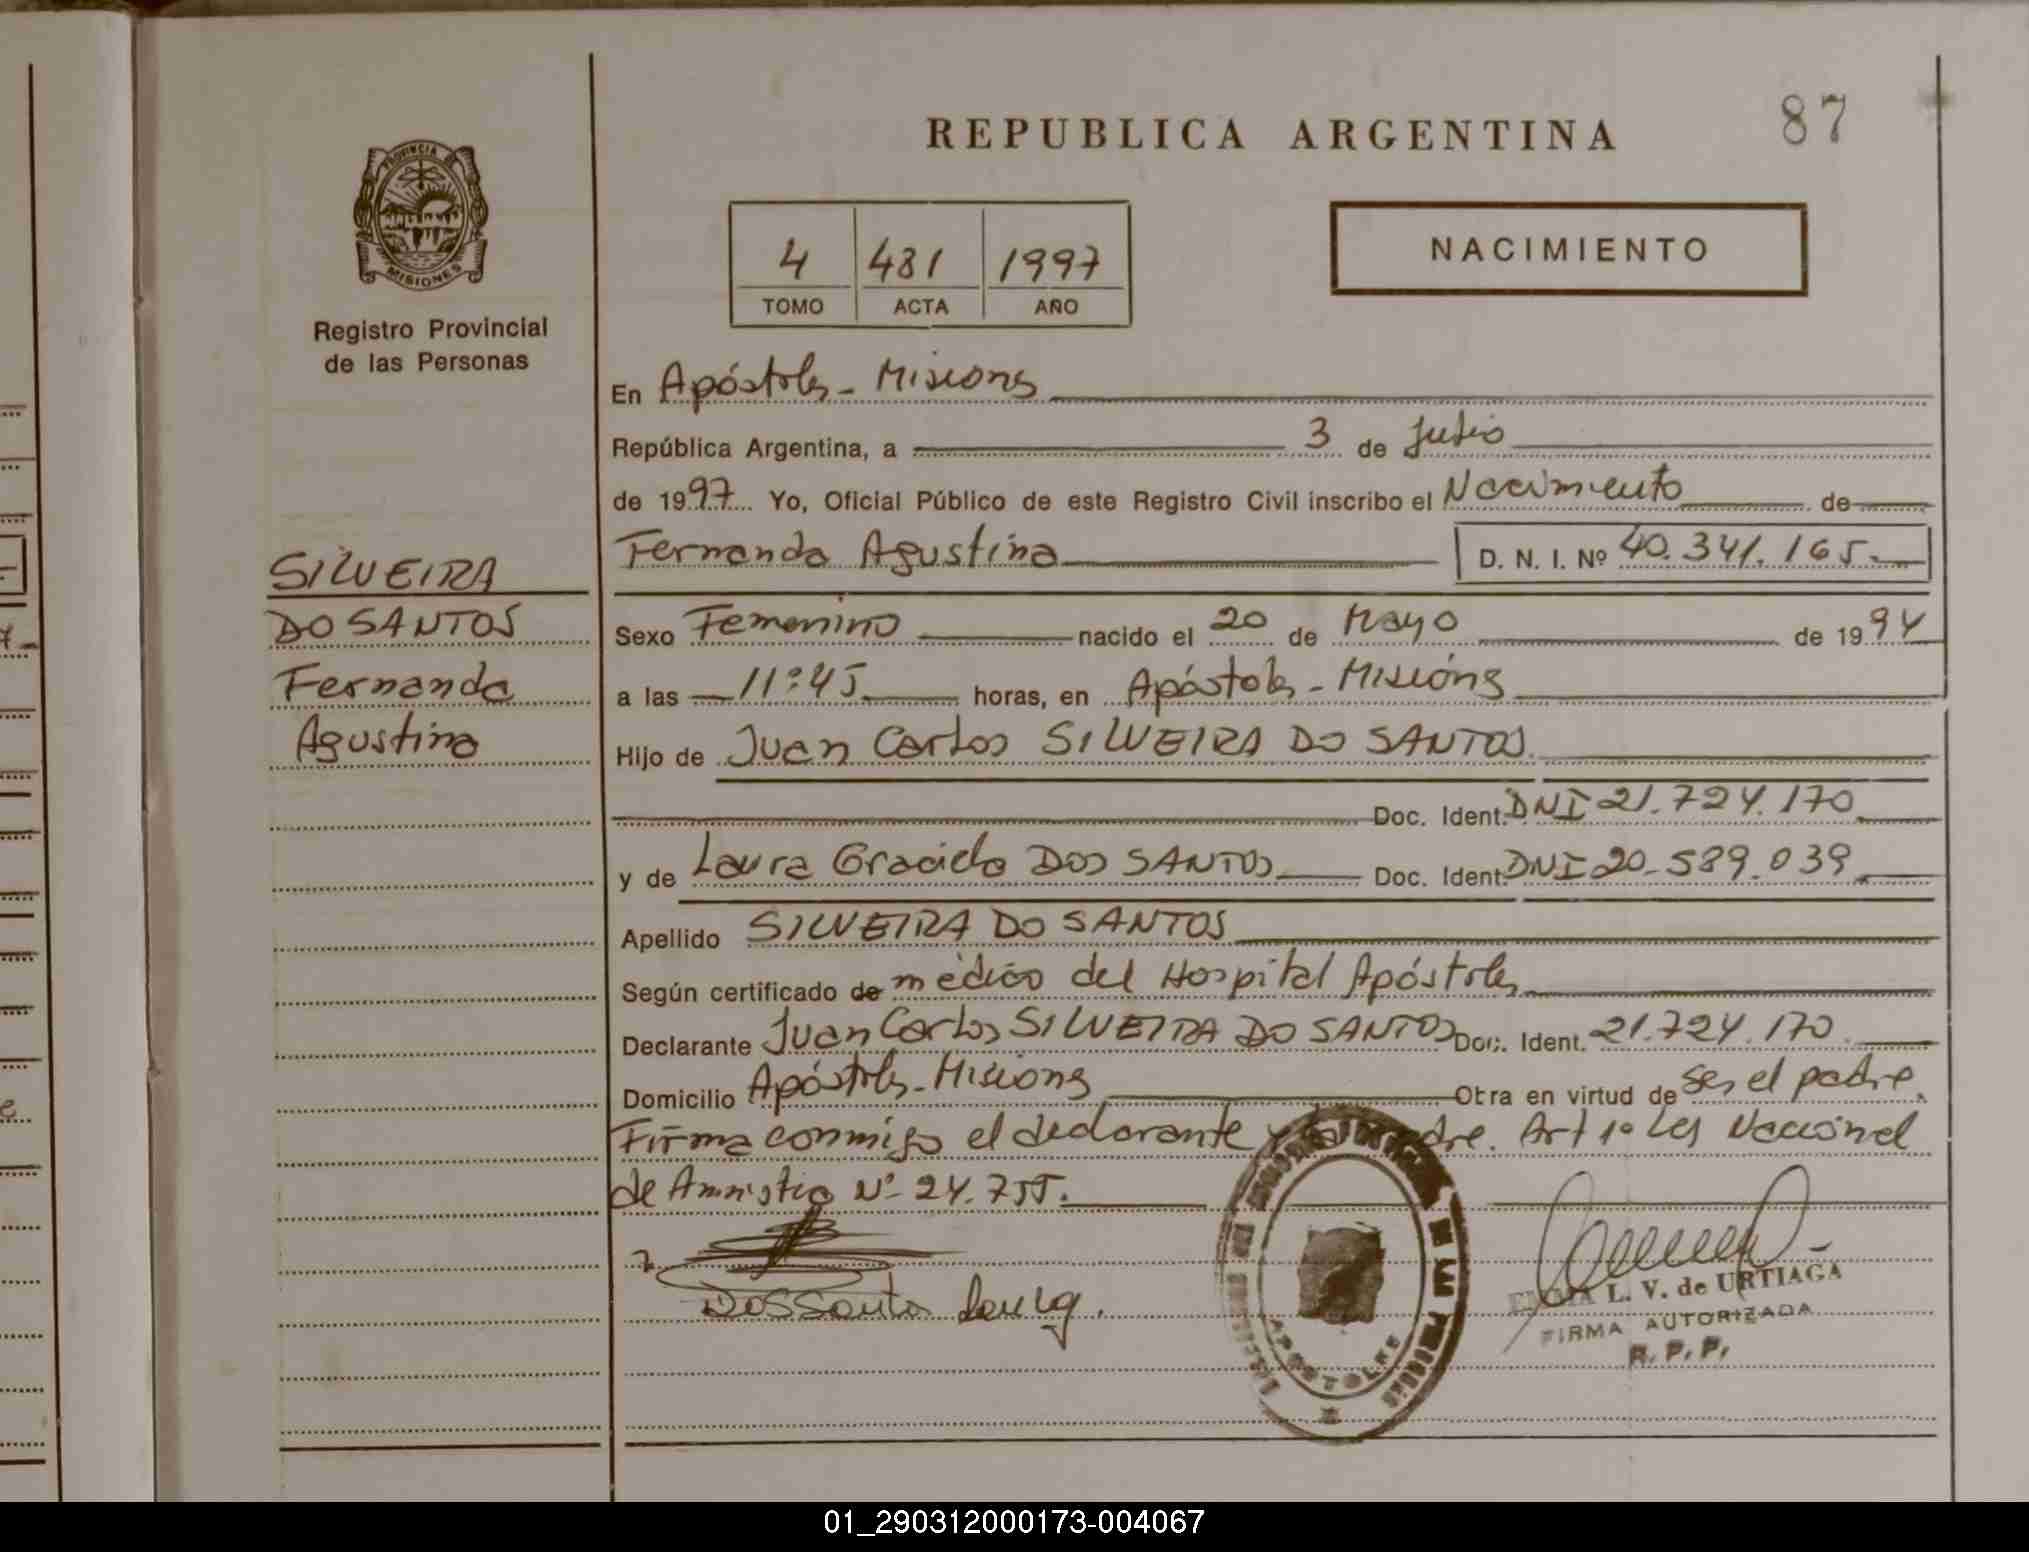 PROVINCIA DE
MISIONES
Registro Provincial
de las Personas
SILVEIRA
DO SANTOS
Fernanda
Agustina
REPUBLICA ARGENTINA
87
4 481 1997
TOMO ACTA AÑO
NACIMIENTO
En Apóstoles - Misiones
República Argentina, a 3 de Julio
de 1997 Yo, Oficial Público de este Registro Civil inscribo el Nacimiento de
Fernanda Agustina D. N. I. Nº 40.341.165.-
Sexo Femenino nacido el 20 de Mayo de 1994
a las 11:45 horas, en Apóstoles - Misiones
Hijo de Juan Carlos SILVEIRA DO SANTOS
Doc. Ident. DNI 21.724.170
y de Laura Graciela DOS SANTOS Doc. Ident. DNI 20.589.039
Apellido SILVEIRA DO SANTOS
Según certificado de médico del Hospital Apóstoles
Declarante Juan Carlos SILVEIRA DO SANTOS Doc. Ident. 21.724.170
Domicilio Apóstoles - Misiones Otra en virtud de ser el padre.
Firma conmigo el declarante y la madre. Art 1º Ley Nacional
de Amnistia Nº 24.755.
Dos Santos Laura.
L. V. de URTIAGA
FIRMA AUTORIZADA
R. P. P.
APOSTOLES
01_290312000173-004067